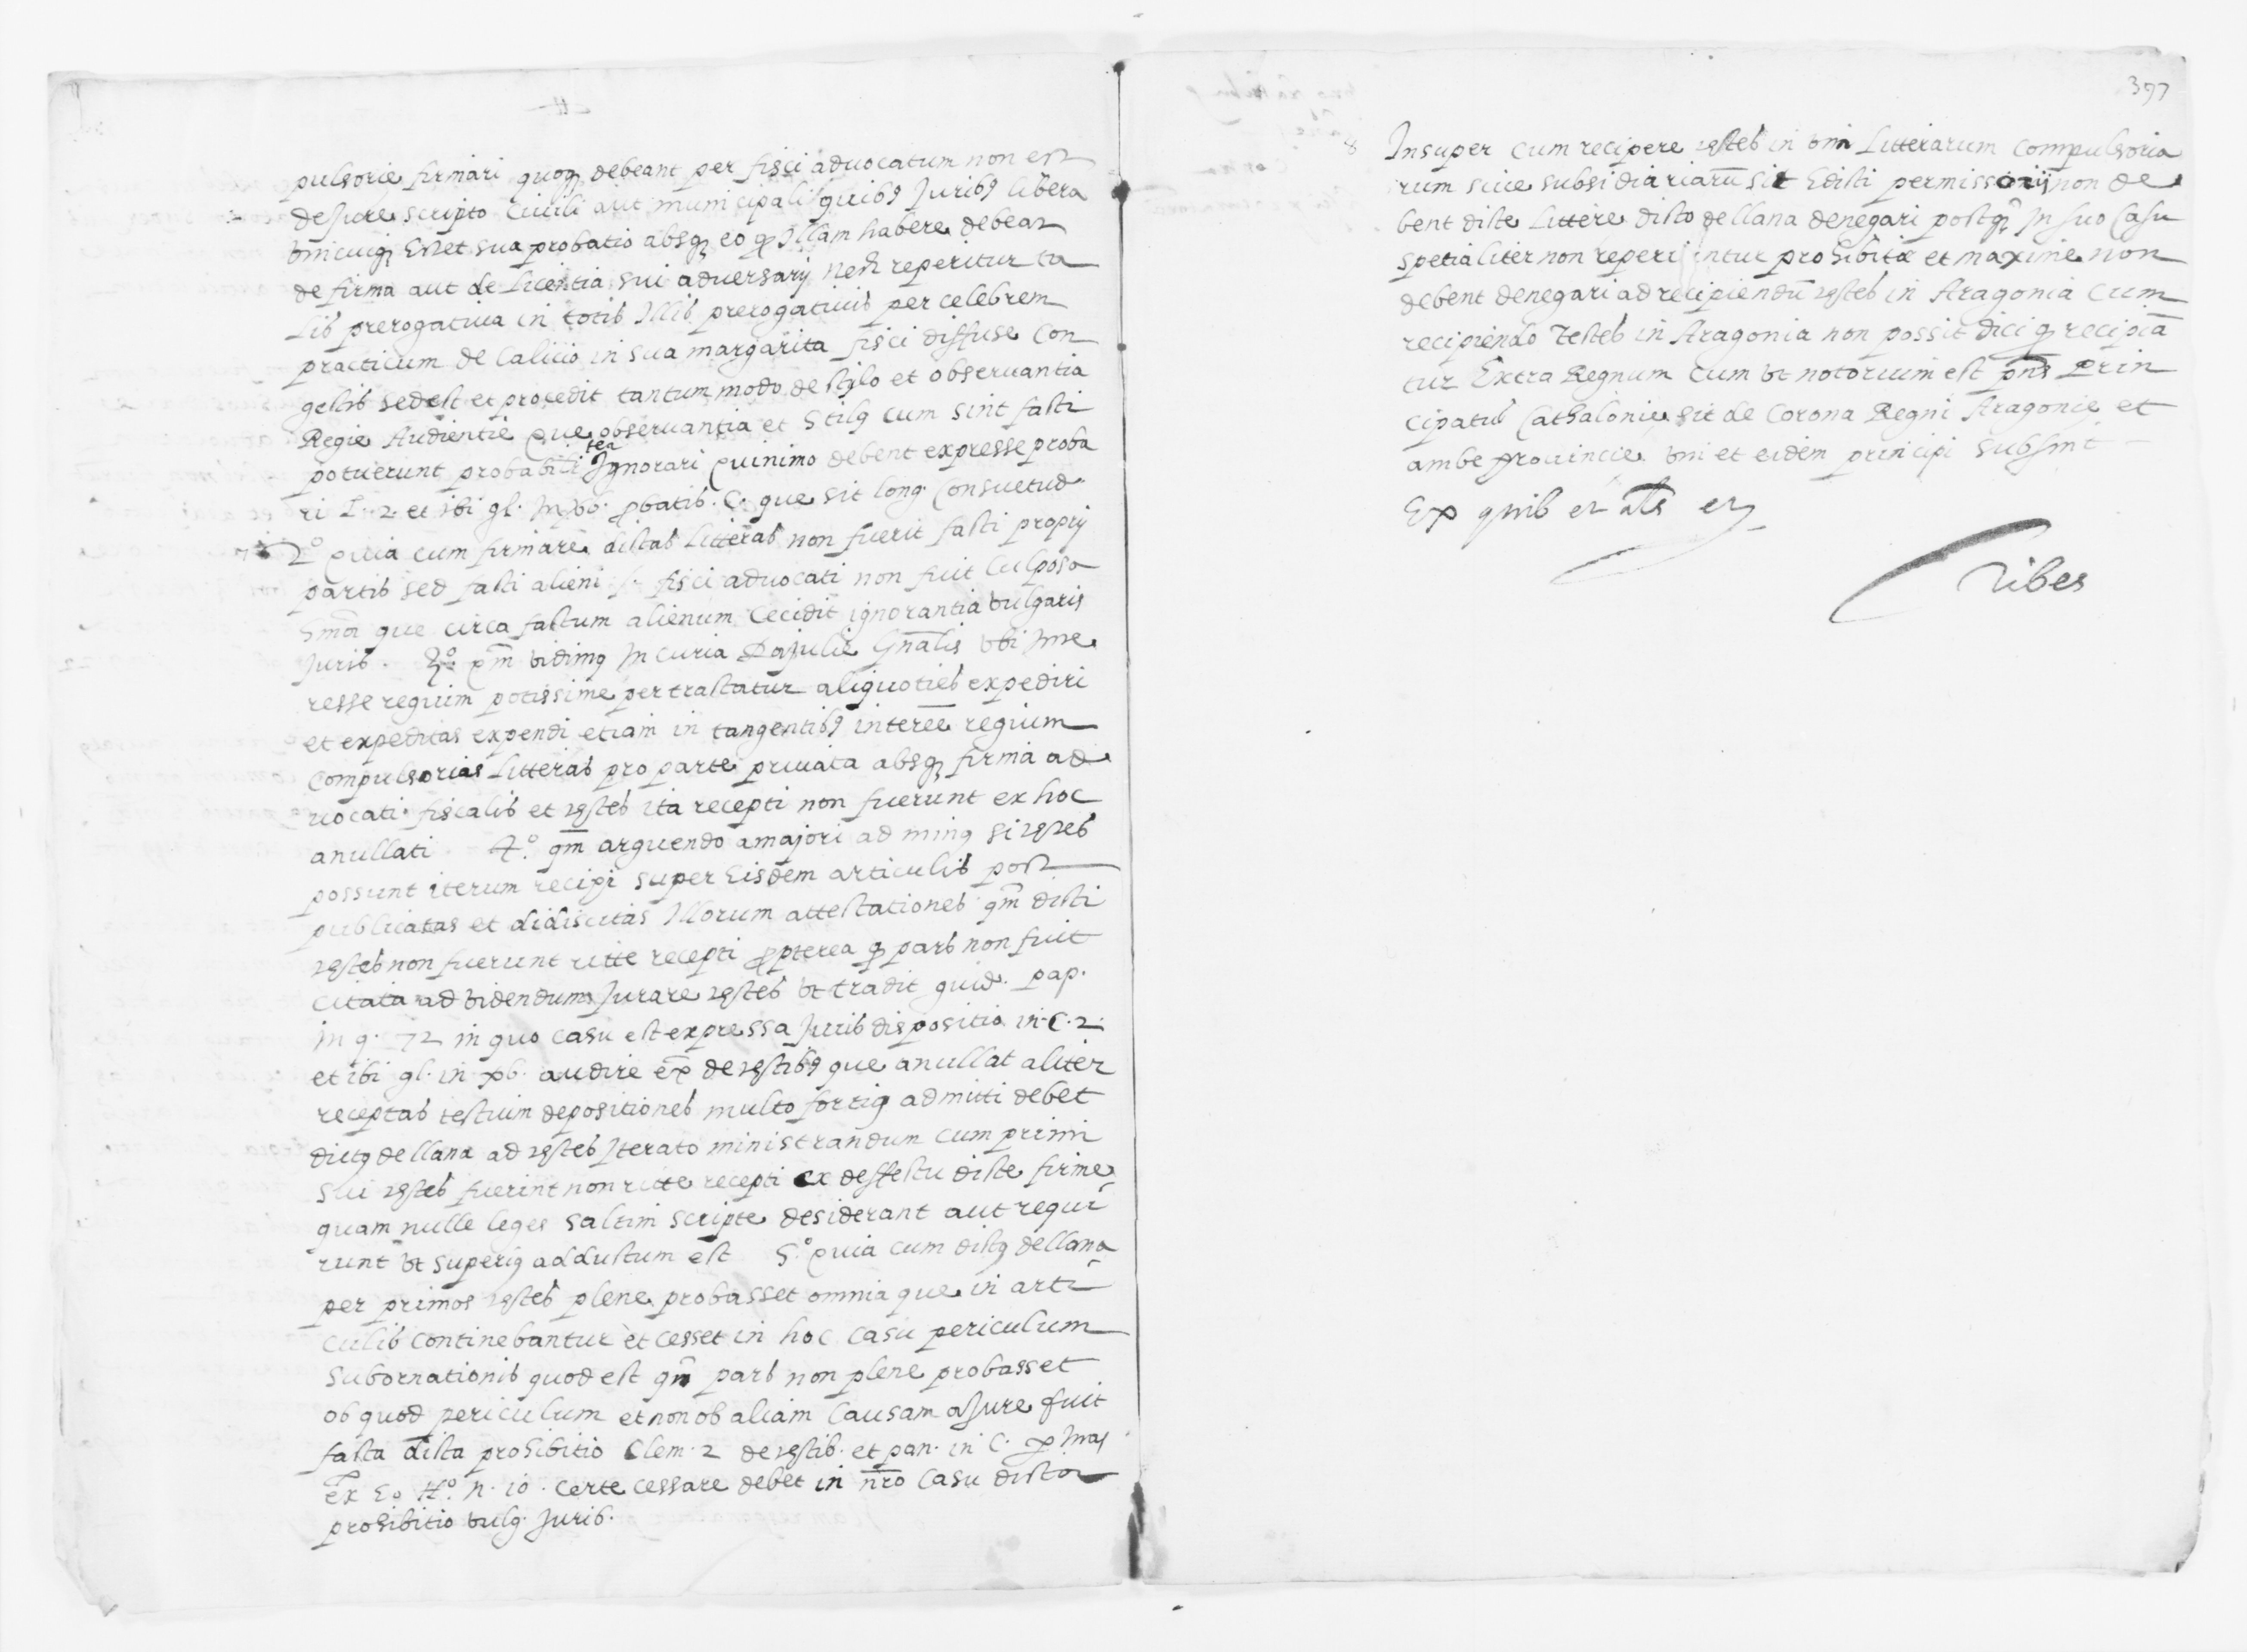 pulsorie firmari quoq debeant per fisci aduocatum non est
de Jure scripto Ciuili aut municipali quibq Juribq libera
vnicuiq Esset sua probatio absq eo q Illam habere debeat
de firma aut de licentia sui aduersarij nedz reperitur ta
lis prerogatiua in totis Illis prerogatiuis per celebrem
practicum de Calicio in sua margarita fisci diffuse con
gestis sed est et procedit tantum modo de stylo et obseruantia
Regie Audientie que obseruantia et Stilq cum sint facti
potuerunt probabiliter Ignorari Quinimo debent expresse proba
ri L. 2. et ibi gl. in vb. pbatis. C. que sit long. Consuetud.
2º quia cum firmare dictas Litteras non fuerit facti proprij
partis sed facti alieni s. fisci aduocati non fuit Culposa
que circa factum alienum Cecidit ignorantia vulgaris
Juris. 3º qm vidimq in curia Bajulie Gnalis vbi Inte
resse regium potissime pertractatur aliquoties expediri
et expeditas expendi etiam in tangentibq interee regium
compulsorias Litteras pro parte priuata absq firma ad
uocati fiscalis et testes ita recepti non fuerunt ex hoc
anullati 4º qm arguendo a majori ad minq si testes
possunt iterum recipi super Eisdem articulis post
publicatas et didiscitas Illorum attestationes qm dicti
testes non fuerunt ritte recepti ppterea q pars non fuit
citata ad videndum Jurare testes vt tradit guid. pap.
in q. 72 in quo casu est expressa Juris dispositio in C. 2.
et ibi gl. in vb. audire ex de testibq que anullat aliter
receptas testium depositiones multo fortiq admitti debet
dictq dellana ad testes Iterato ministrandum cum primi
sui testes fuerint non ritte recepti ex deffectu dicte firme
quam nulle leges saltim scripte desiderant aut requi
runt vt superiq adductum est 5º quia cum dictq dellana
per primos testes plene probasset omnia que in arti
culis continebantur et cesset in hoc casu periculum
subornationis quod est qm pars non plene probasset
ob quod periculum et non ob aliam Causam a Jure fuit
facta dicta prohibitio Clem. 2 de testib. et pan. in C.
ex Eo ttº. n. 10. certe cessare debet in nro casu dicta
prohibitio vulg. Juris.
397
8 Insuper cum recipere testes in vim Litterarum compulsoria
rum siue subsidiariaru sit Edicti permissorij non de
bent dicte Littere dicto dellana denegari postq In suo Casu
spetialiter non reperiuntur prohibite et maxime non
debent denegari ad recipiendu testes in Aragonia Cum
recipiendo Testes in Aragonia non possit dici q recipia
tur Extra Regnum Cum vt notorium est pns Prin
cipatus Cathalonie sit de Corona Regni Aragonie et
ambe prouincie vni et eidem principi subsint
Ex quib et als etz
Ribes